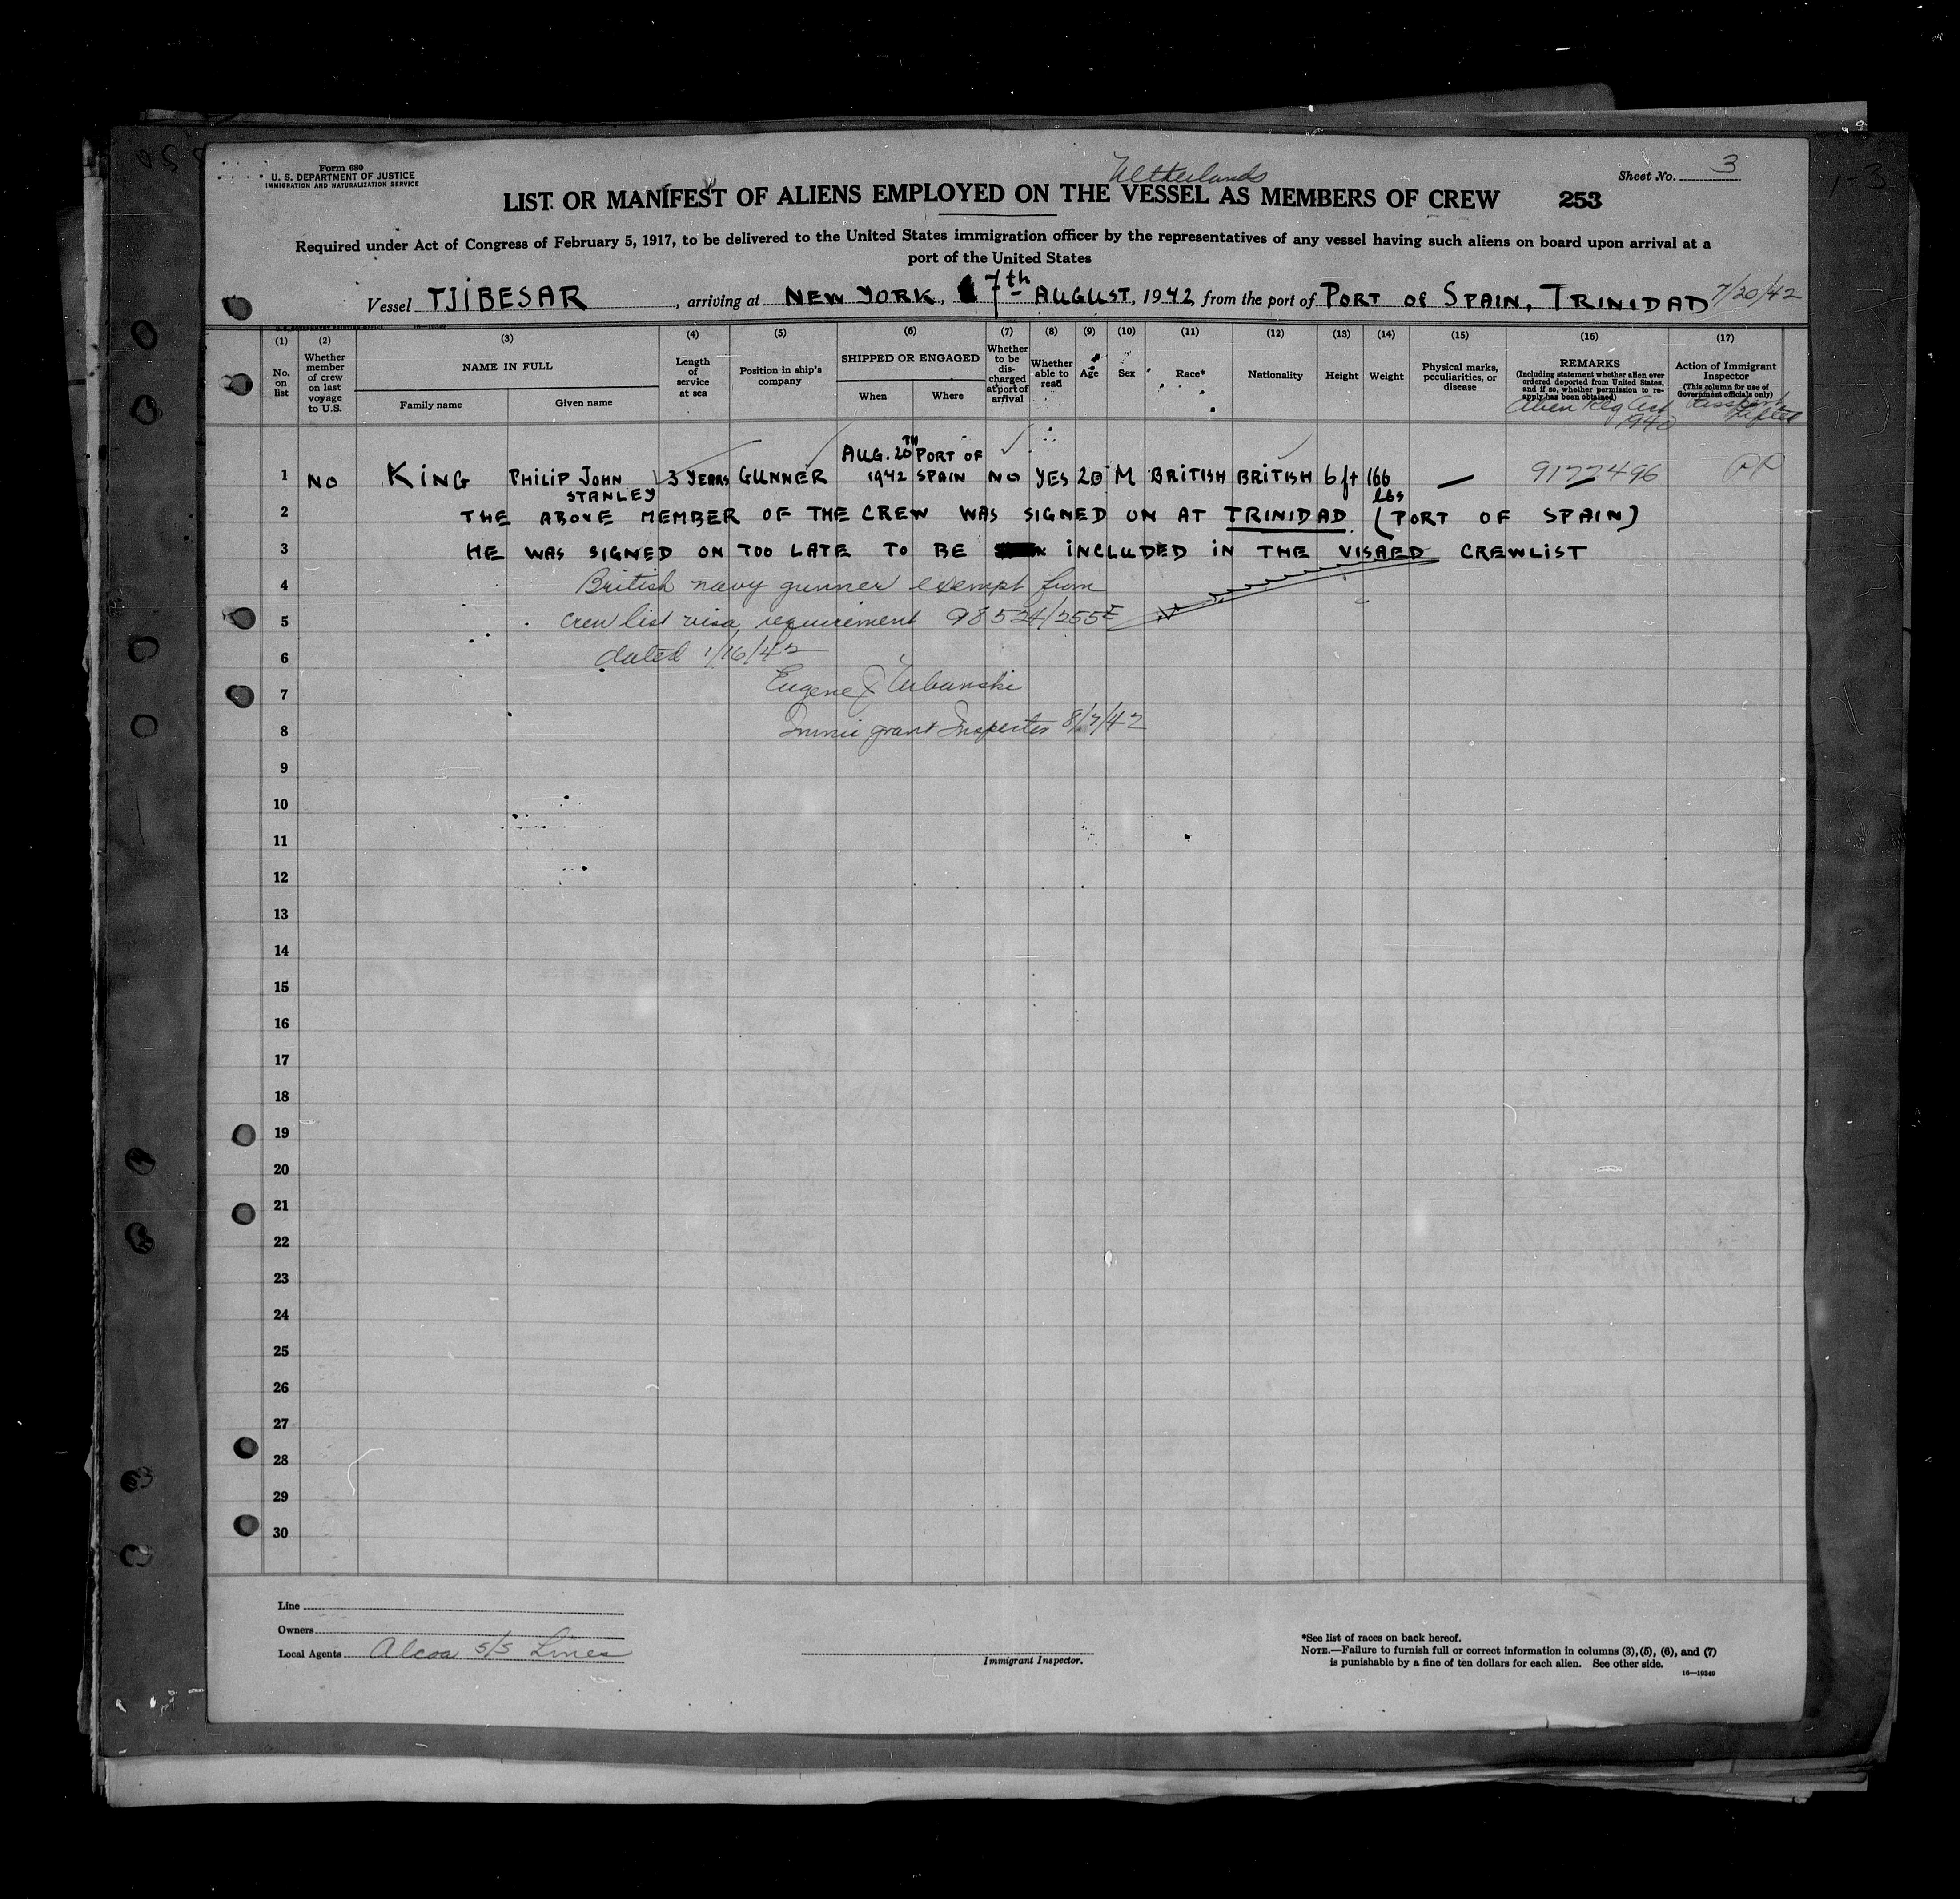 Form 680
U. S. DEPARTMENT OF JUSTICE
IMMIGRATION AND NATURALIZATION SERVICE
Netherlands
Sheet No. 3
LIST OR MANIFEST OF ALIENS EMPLOYED ON THE VESSEL AS MEMBERS OF CREW 253
Required under Act of Congress of February 5, 1917, to be delivered to the United States immigration officer by the representatives of any vessel having such aliens on board upon arrival at a
port of the United States
Vessel TJIBESAR, arriving at NEW YORK, 7th AUGUST, 1942 from the port of PORT OF SPAIN, TRINIDAD 7/20/42
(1) (2) (3) (4) (5) (6) (7) (8) (9) (10) (11) (12) (13) (14) (15) (16) (17)
No. on list
Whether member of crew on last voyage to U.S.
NAME IN FULL
Family name Given name
Length of service at sea
Position in ship's company
SHIPPED OR ENGAGED
When Where
Whether to be discharged at port of arrival
Whether able to read
Age
Sex
Race*
Nationality
Height
Weight
Physical marks, peculiarities, or disease
REMARKS
(Including statement whether alien ever ordered deported from United States, and if so, whether permission to reapply has been obtained)
Alien Reg Act 1940
Action of Immigrant Inspector
(This column for use of Government officials only)
1 NO KING PHILIP JOHN STANLEY 3 YEARS GUNNER AUG. 20TH 1942 PORT OF SPAIN NO YES 20 M BRITISH BRITISH 6 ft 166 lbs — 9177496 PP
2 THE ABOVE MEMBER OF THE CREW WAS SIGNED ON AT TRINIDAD (PORT OF SPAIN)
3 HE WAS SIGNED ON TOO LATE TO BE INCLUDED IN THE VISAED CREWLIST
4 British navy gunner exempt from
5 crew list visa requirement 98524/255E
6 dated 1/16/42
7 Eugene J Urbanski
8 Immigrant Inspector 8/7/42
9
10
11
12
13
14
15
16
17
18
19
20
21
22
23
24
25
26
27
28
29
30
Line
Owners
Local Agents Alcoa S/S Lines
Immigrant Inspector.
*See list of races on back hereof.
NOTE.—Failure to furnish full or correct information in columns (3), (5), (6), and (7)
is punishable by a fine of ten dollars for each alien. See other side.
16—19349